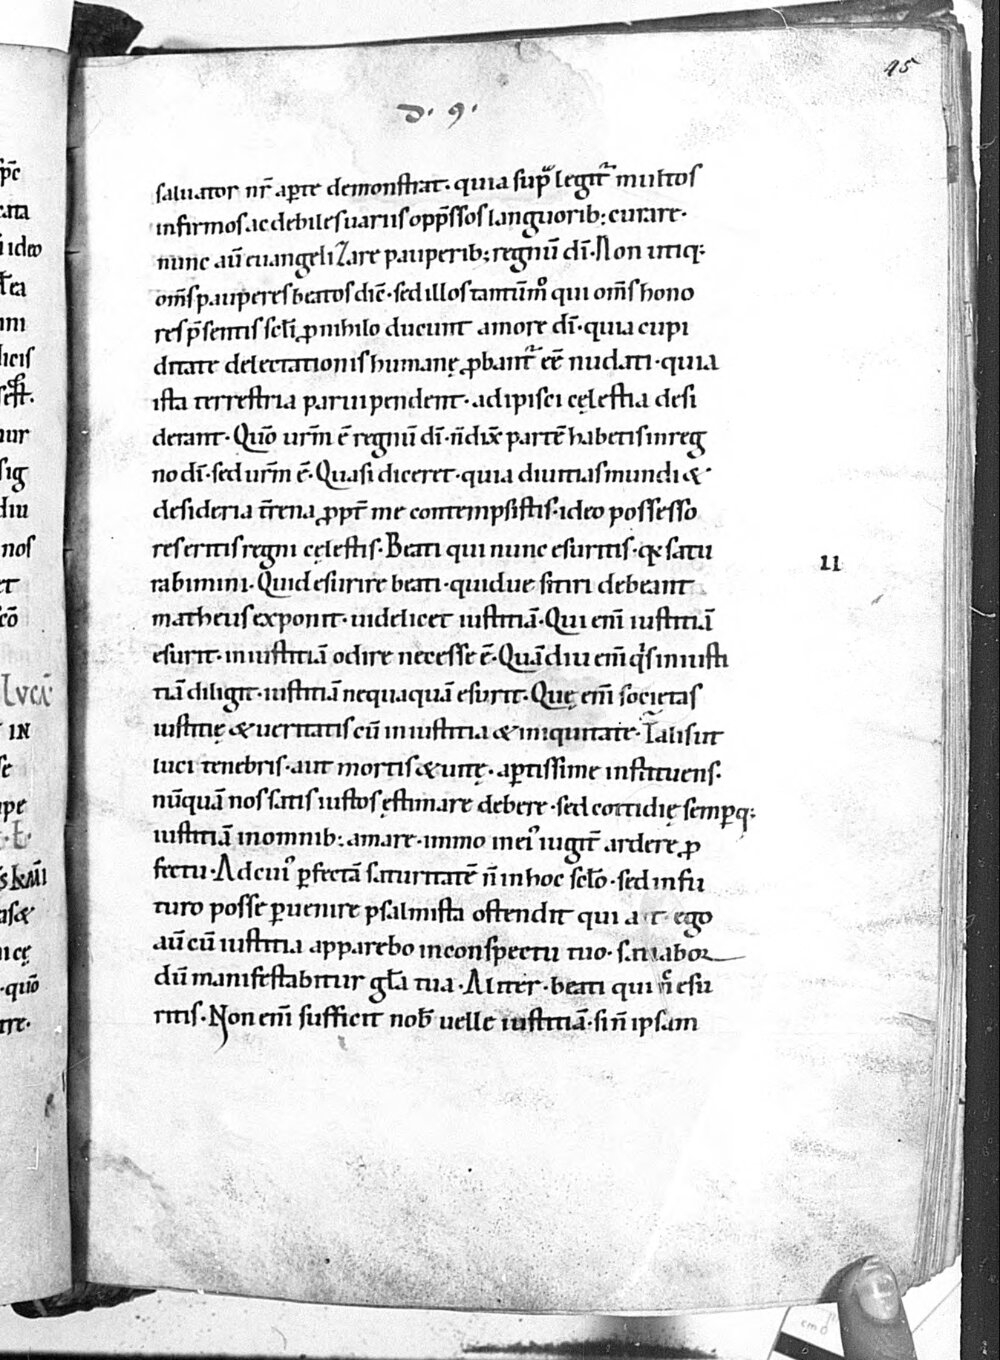 45
d. 9.
saluator nr̄ aꝑte demonstrat. quia sup̄ legit᷑ multos
infirmos ac debiles uariis opp̄ssos languorib; curare.
nunc aū euangelizare pauperib; regnū dī. Non utiq;
om̄s pauperes beatos dic̄. sed illos tantūm̊ qui om̄s hono
res p̄sentis sc̄li ꝓ nihilo ducunt amore dī. quia cupi
ditate delectationis humanę ꝓbant᷑ eē nudati. quia
ista terrestria paruipendent. adipisci cęlestia desi
derant. Quō ur̄m ē regnū dī. n̄ dix̄ partē habetis in reg
no dī. sed ur̄m ē. Quasi diceret. quia diuitias mundi &
desideria t̄rena ꝓpt̄ me contempsistis. ideo possesso
res eritis regni cęlestis. Beati qui nunc esuritis. q̄ satu
rabimini. Quid esurire beati. quidue sitiri debeant
matheus exponit. uidelicet iustitiā. Qui eni̅ iustitiā
esurit. iniustitiā odire necesse ē. Quādiu em̄ qͥs iniusti
tiā diligit. iustitiā nequaquā esurit. Quę em̄ societas
iustitię & ueritatis cū iniustitia & iniquitate. Talis ut
luci tenebris. aut mortis & uitę. aꝑtissime instituens.
nūquā nos satis iustos ęstimare debere. sed cottidię semꝑq;
iustitiā in omnib; amare. immo mei᷒ iugit̄ ardere ꝓ
fectu. Ad cui᷒ ꝑfectā saturitatē n̄ in hoc sc̄lo. sed in fu
turo posse ꝑuenire psalmista ostendit qui ait ego
aū cū iustitia apparebo in conspectu tuo. satiabor
dū manifestabitur gl̄a tua. Aliter. beati qui n̄c esu
ritis. Non em̄ sufficit nob̄ uelle iustitiā. si n̄ ipsam
11